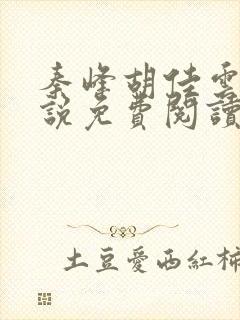 秦峰胡佳雲
說免費閱讀
土豆愛西紅柿